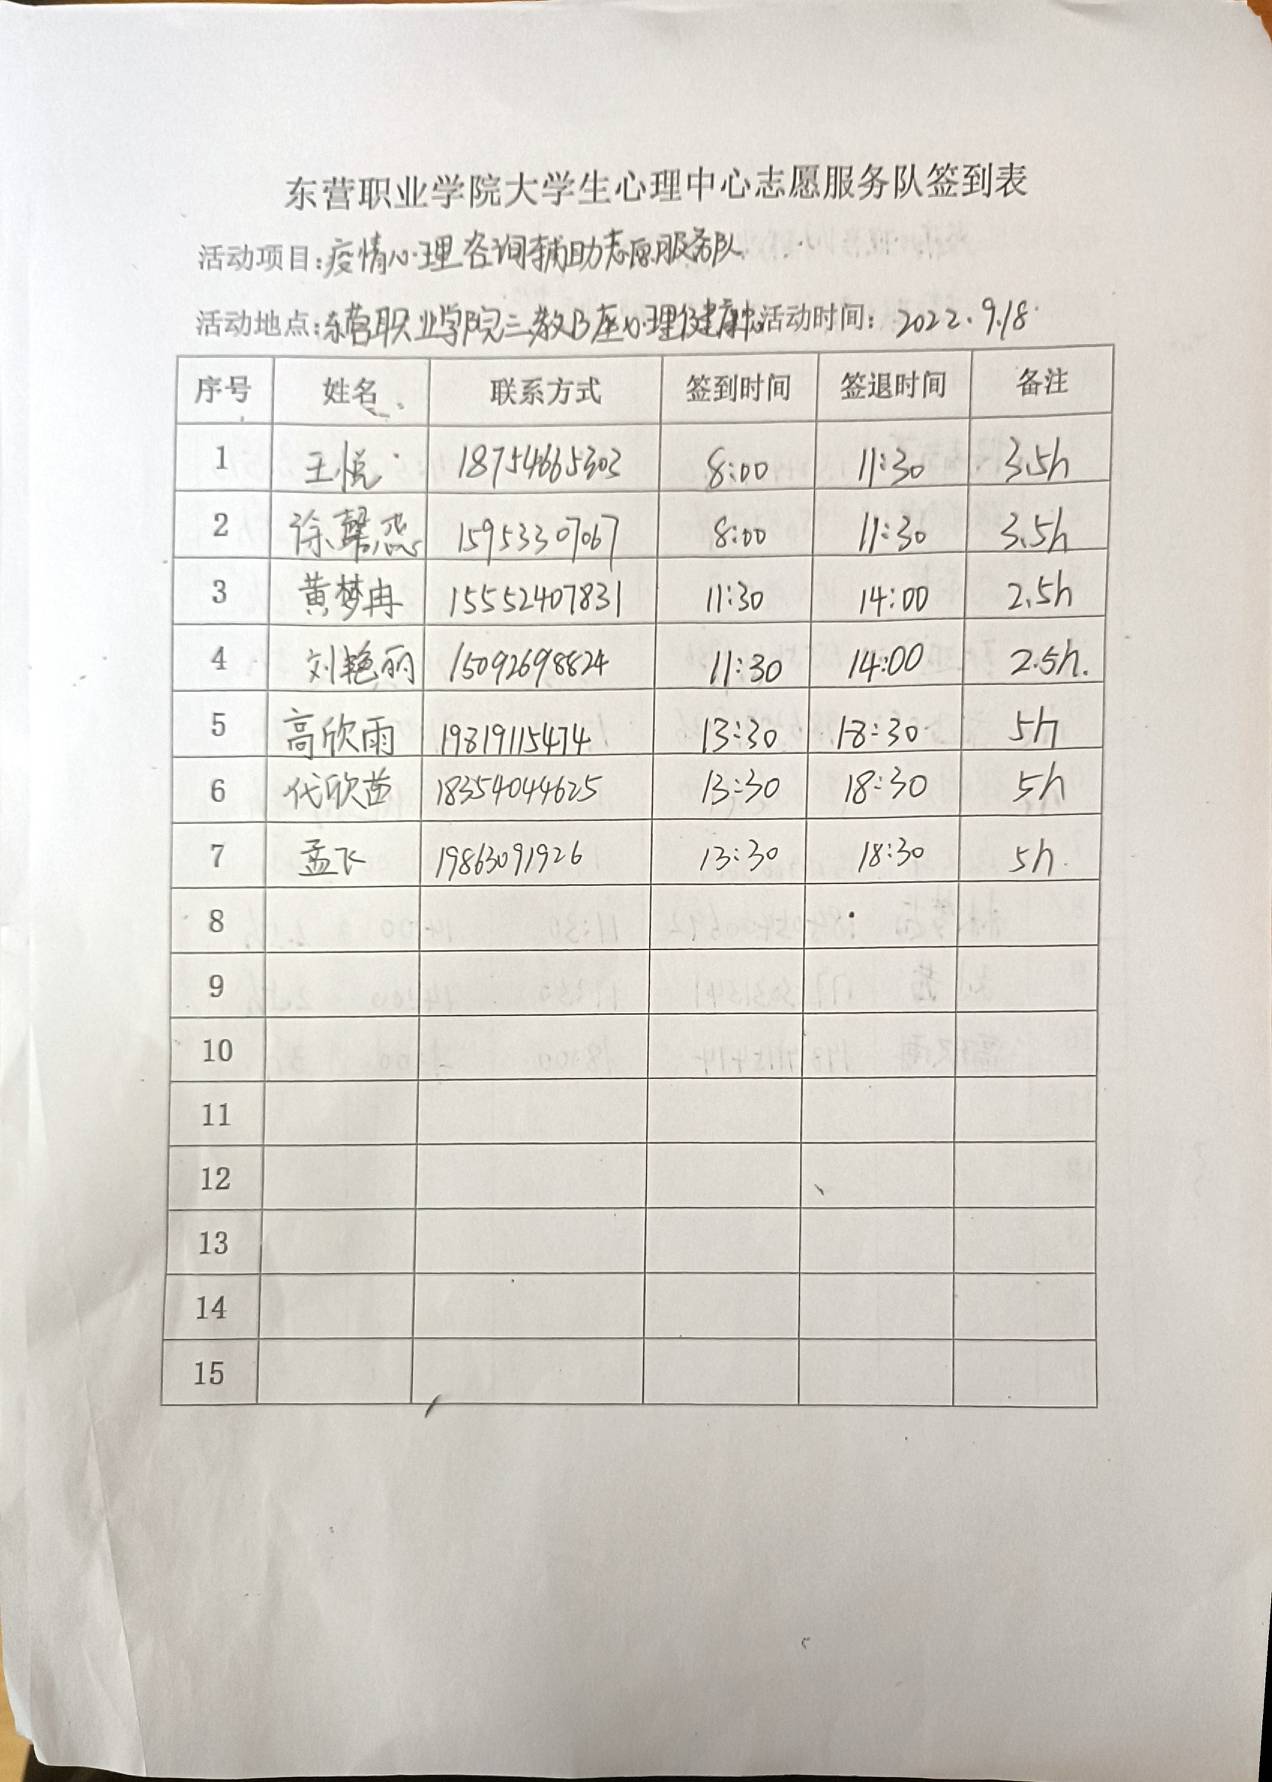 东营职业学院大学生心理中心志愿服务队签到表
活动项目:疫情心理咨询辅助志愿服务队
活动地点:东营职业学院三教B座心理健康中心活动时间: 2022.9.18
序号 姓名 联系方式 签到时间 签退时间 备注
1 王悦 18754665303 8:00 11:30 3.5h
2 徐馨燕 15953307067 8:00 11:30 3.5h
3 黄梦冉 15552407831 11:30 14:00 2.5h
4 刘艳丽 15092698824 11:30 14:00 2.5h.
5 高欣雨 19819115474 13:30 18:30 5h
6 代欣苗 18354044625 13:30 18:30 5h
7 孟飞 19863091926 13:30 18:30 5h
8
9
10
11
12
13
14
15